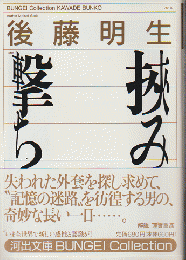 BUNGEI Collection KAWADE BUNKO
後藤明生
挟み
撃ち
失われた外套を探し求めて、
〈記憶の迷路〉を彷徨する男の、
奇妙な長い一日……。
河出文庫 BUNGEI Collection